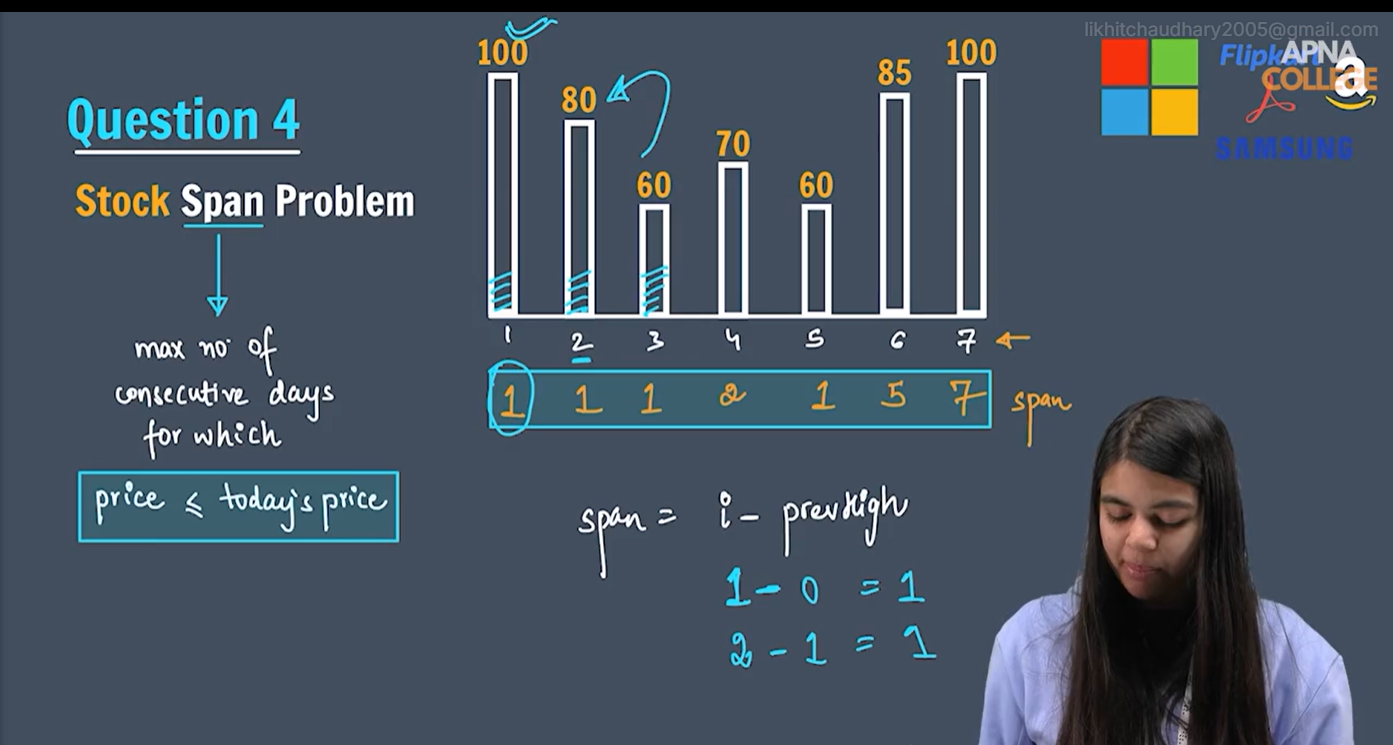 likhitchaudhary2005@gmail.com
Flipkart
APNA
COLLEGE
a
SAMSUNG
Question 4
Stock Span Problem
max no. of
consecutive days
for which
price ≤ today's price
100 80 60 70 60 85 100
1 2 3 4 5 6 7
1 1 1 2 1 5 7 span
span = i - prevHigh
1 - 0 = 1
2 - 1 = 1